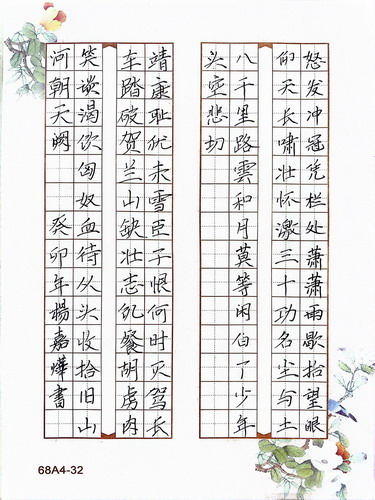 怒发冲冠凭栏处萧萧雨歇抬望眼
仰天长啸壮怀激三十功名尘与土
八千里路雲和月莫等闲白了少年
头空悲切
靖康耻犹未雪臣子恨何时灭驾长
车踏破贺兰山缺壮志饥餐胡虏肉
笑谈渴饮匈奴血待从头收拾旧山
河朝天阙 癸卯年楊嘉燁書
68A4-32